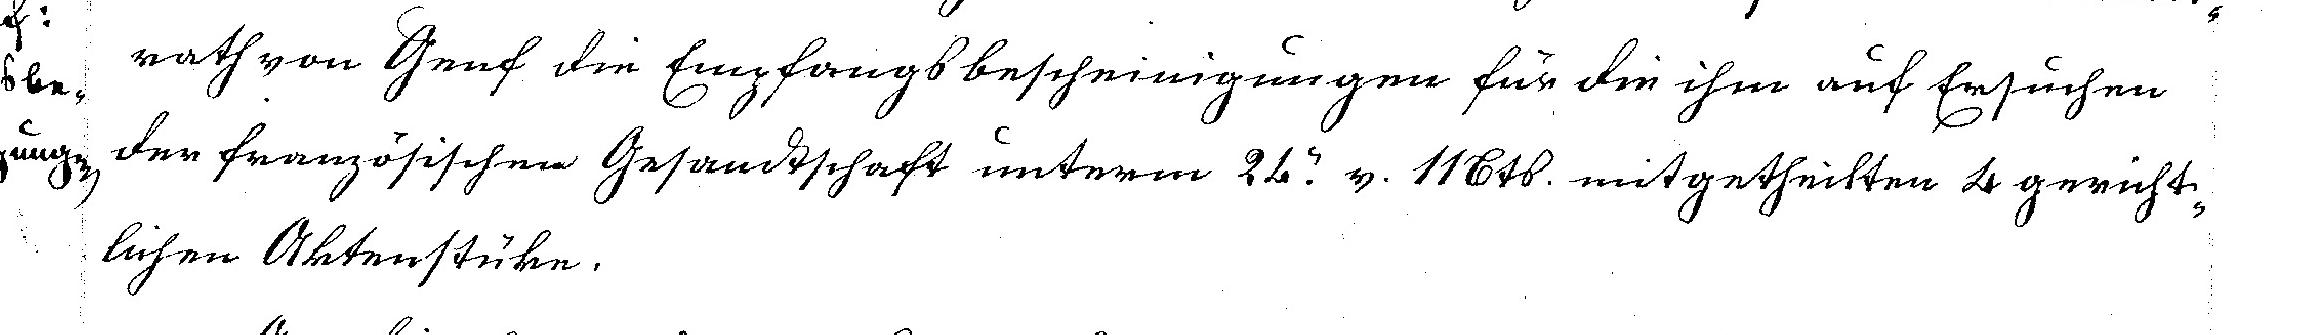 sbe-
rath von Genf die Empfangsbescheinigungen für die ihm auf Ersuchen
der französischen Gesandtschaft unterm 24. v. Mts. mitgetheilten 4 gericht-
lichen Aktenstüke.